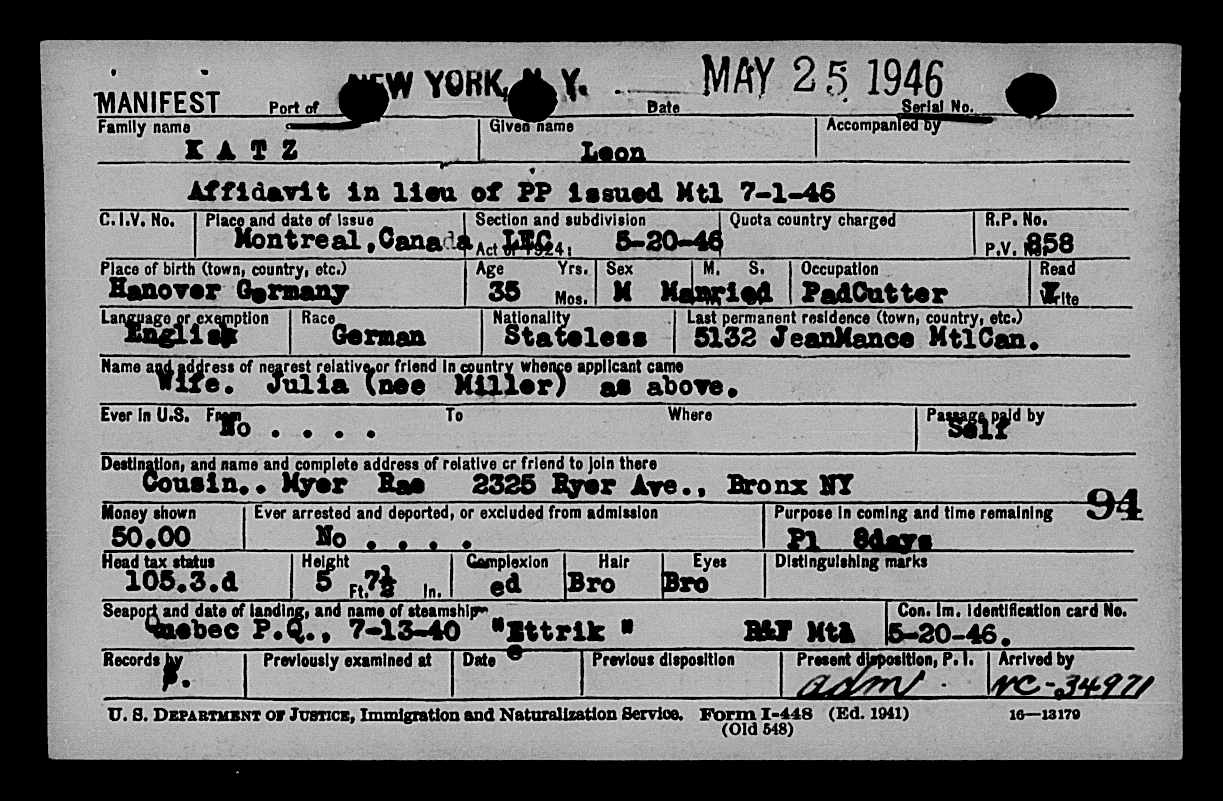 NEW YORK, N. Y. MAY 25 1946
MANIFEST Port of Date Serial No.
Family name Given name Accompanied by
K A T Z Leon
Affidavit in lieu of PP issued Mtl 7-1-46
C.I.V. No. Place and date of issue Section and subdivision Quota country charged R.P. No.
Montreal,Canada Act of 1924: LEC 5-20-46 P.V. No. 858
Place of birth (town, country, etc.) Age Yrs. Sex M. S. Occupation Read
Hanover Germany 35 Mos. M Married PadCutter Write
Language or exemption Race Nationality Last permanent residence (town, country, etc.)
English German Stateless 5132 JeanMance MtlCan.
Name and address of nearest relative or friend in country whence applicant came
Wife. Julia (nee Miller) as above.
Ever in U.S. From To Where Passage paid by
No . . . . Self
Destination, and name and complete address of relative or friend to join there
Cousin.. Myer Rae 2325 Ryer Ave., Bronx NY
Money shown Ever arrested and deported, or excluded from admission Purpose in coming and time remaining 94
50.00 No . . . . Pl 8days
Head tax status Height Complexion Hair Eyes Distinguishing marks
105.3.d 5 Ft. 7½ In. ed Bro Bro
Seaport and date of landing, and name of steamship Con. Im. Identification card No.
Quebec P.Q., 7-13-40 "Ettrik " R&F Mtl 5-20-46.
Records by Previously examined at Date Previous disposition Present disposition, P. I. Arrived by
adm VC-34971
U. S. DEPARTMENT OF JUSTICE, Immigration and Naturalization Service. Form I-448 (Ed. 1941) 16—13179
(Old 548)